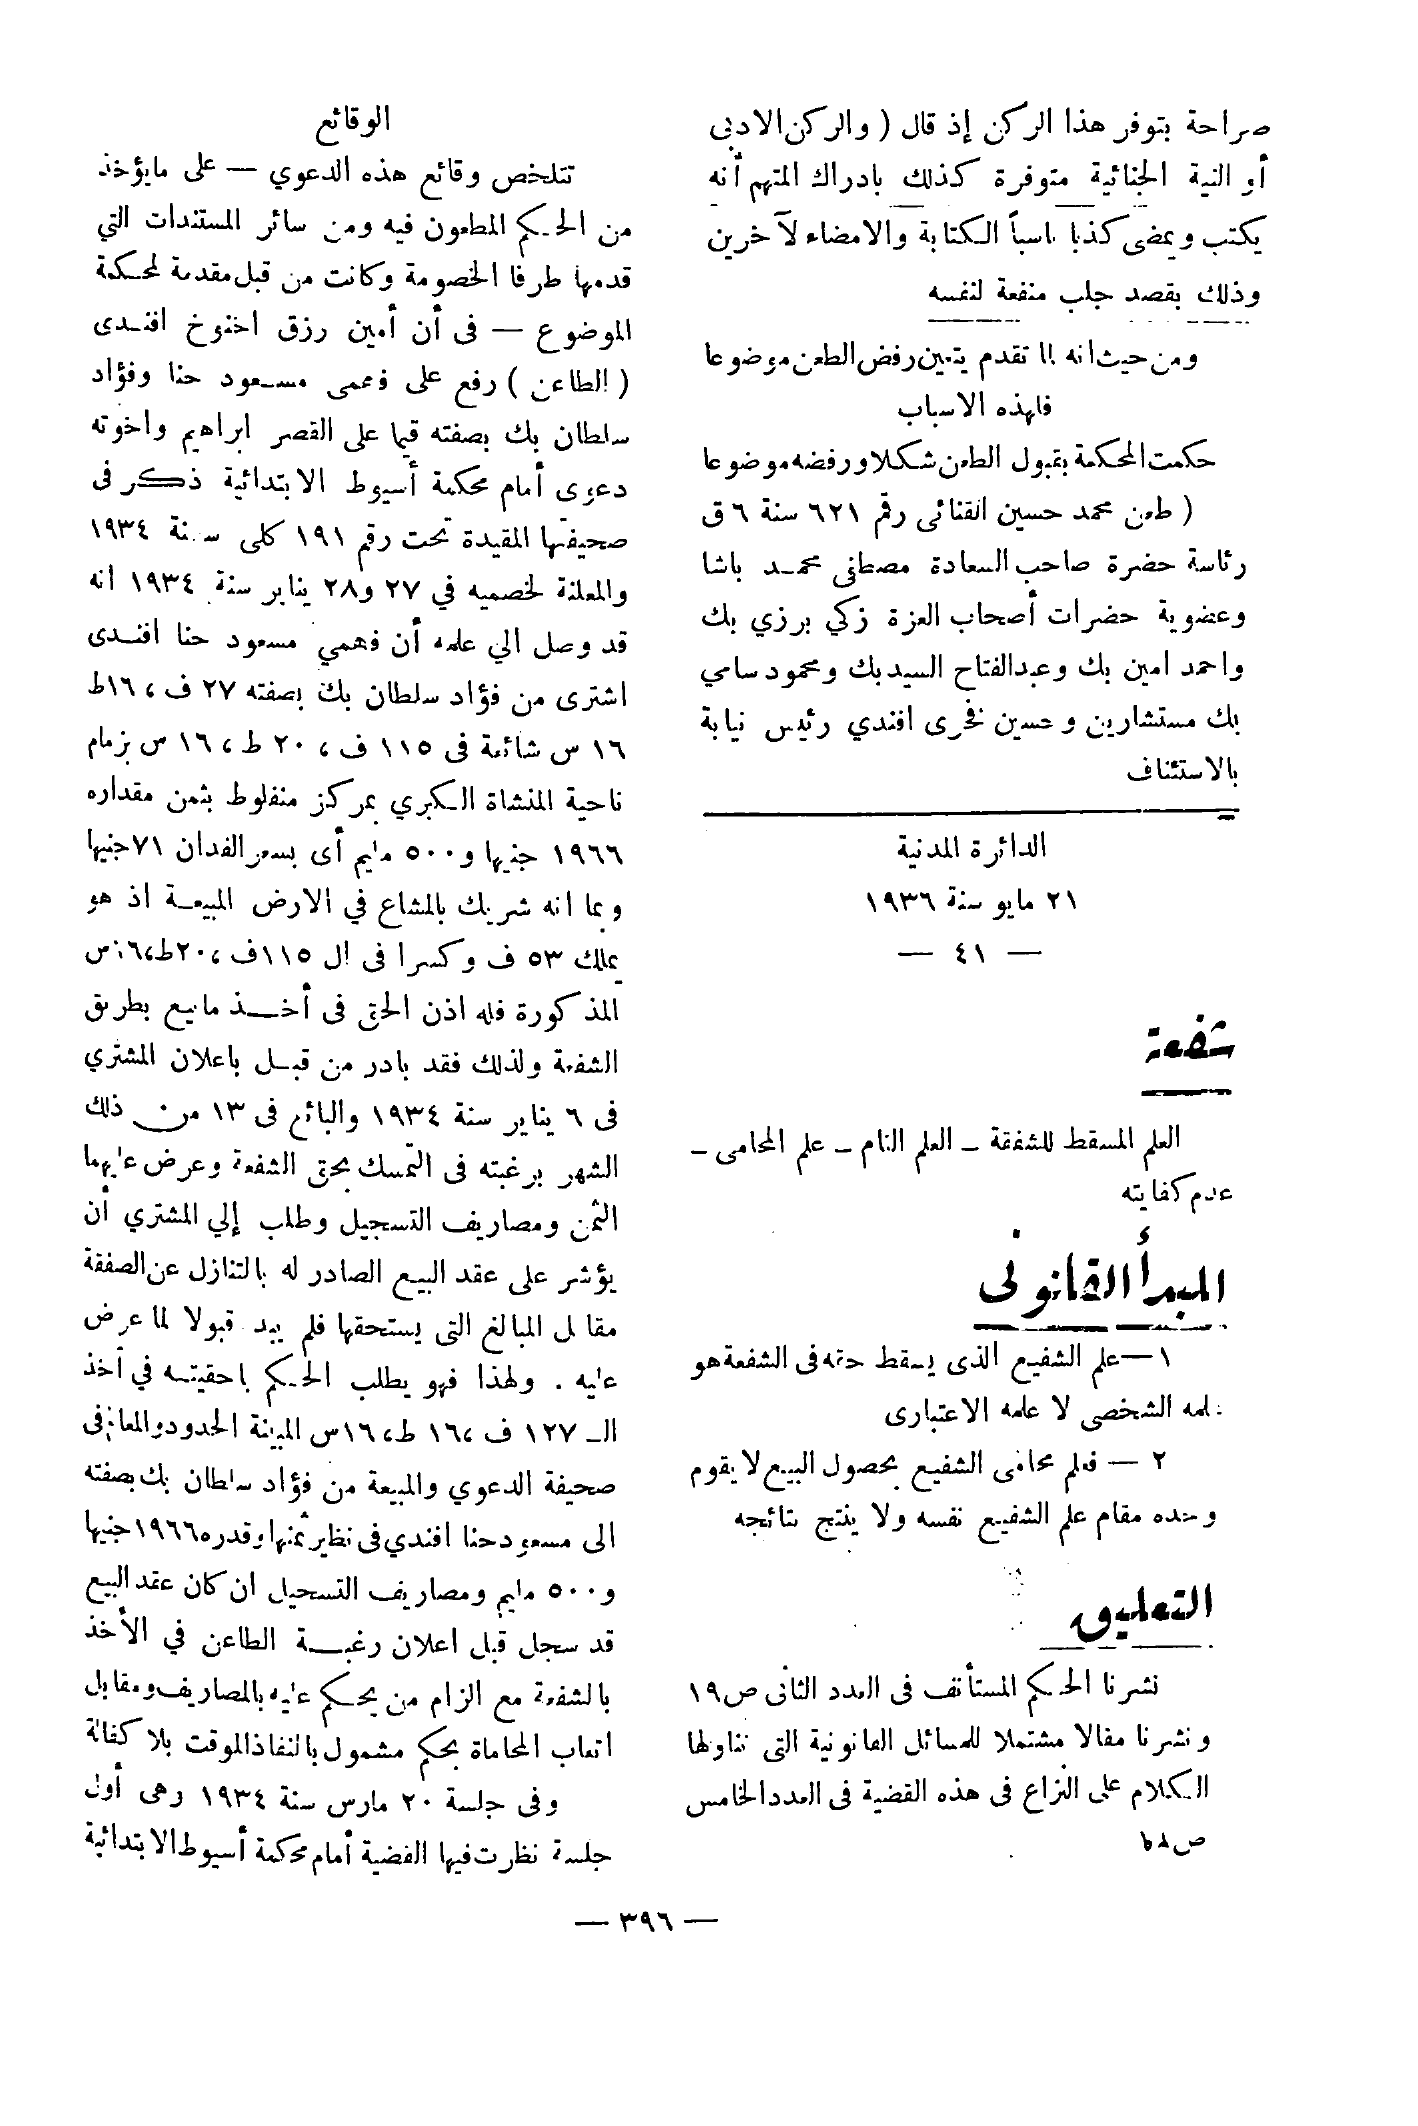 صراحة بتوفر هذا الركن إذ قال ( والركن الادبى
أو النية الجنائية متوفرة كذلك بادراك المتهم أنه
يكتب ويمضى كذبا ناسباً الكتابة والامضاء لآخرين
وذلك بقصد جلب منفعة لنفسه
ومن حيث انه لما تقدم يتعين رفض الطعن موضوعا
فلهذه الاسباب
حكمت المحكمة بقبول الطعن شكلا ورفضه موضوعا
( طعن محمد حسين القنائى رقم ٦٢١ سنة ٦ ق
رئاسة حضرة صاحب السعادة مصطفى محمد باشا
وعضوية حضرات أصحاب العزة زكي برزي بك
واحمد امين بك وعبدالفتاح السيد بك ومحمود سامي
بك مستشارين وحسين فخرى افندي رئيس نيابة
بالاستئناف
الدائرة المدنية
٢١ مايو سنة ١٩٣٦
— ٤١ —
شفعة
العلم المسقط للشفقة – العلم التام – علم المحامى –
عدم كفايته
المبدأ القانونى
١ — علم الشفيع الذى يسقط حقه فى الشفعة هو
علمه الشخصى لا علمه الاعتبارى
٢ — فعلم محامى الشفيع بحصول البيع لا يقوم
وحده مقام علم الشفيع نفسه ولا ينتج نتائجه
التعليق
نشرنا الحكم المستأنف فى العدد الثانى ص ١٩
ونشرنا مقالا مشتملا للمسائل القانونية التى تناولها
الكلام على النزاع فى هذه القضية فى العدد الخامس
ص
الوقائع
تتلخص وقائع هذه الدعوي — على مايؤخذ
من الحكم المطعون فيه ومن سائر المستندات التي
قدمها طرفا الخصومة وكانت من قبل مقدمة لمحكمة
الموضوع — فى أن أمين رزق اخنوخ افندى
( الطاعن ) رفع على فهمى مسعود حنا وفؤاد
سلطان بك بصفته قيما على القصر ابراهيم واخوته
دعوى أمام محكمة أسيوط الابتدائية ذكر فى
صحيفتها المقيدة تحت رقم ١٩١ كلى سنة ١٩٣٤
والمعلنة لخصميه في ٢٧ و٢٨ يناير سنة ١٩٣٤ انه
قد وصل الي علمه أن فهمي مسعود حنا افندى
اشترى من فؤاد سلطان بك بصفته ٢٧ ف ، ١٦ط
١٦ س شائعة فى ١١٥ ف ، ٢٠ ط ، ١٦ س بزمام
ناحية المنشاة الكبري بمركز منفلوط بثمن مقداره
١٩٦٦ جنيها و٥٠٠ مليم أى بسعر الفدان ٧١ جنيها
وبما انه شريك بالمشاع في الارض المبيعة اذ هو
يملك ٥٣ ف وكسرا فى ال ١١٥ف ،٢٠ط،١٦س
المذكورة فله اذن الحق فى أخذ مابيع بطريق
الشفعة ولذلك فقد بادر من قبل باعلان المشتري
فى ٦ يناير سنة ١٩٣٤ والبائع فى ١٣ من ذلك
الشهر برغبته فى التمسك بحق الشفعة وعرض عليهما
الثمن ومصاريف التسجيل وطلب إلي المشتري أن
يؤشر على عقد البيع الصادر له بالتنازل عن الصفقة
مقابل المبالغ التى يستحقها فلم يبد قبولا لما عرض
عليه . ولهذا فهو يطلب الحكم باحقيته في أخذ
الـ ١٢٧ ف ،١٦ ط،١٦س المبينة الحدود والمعالم فى
صحيفة الدعوي والمبيعة من فؤاد سلطان بك بصفته
الى مسعود حنا افندي فى نظير ثمنها وقدره ١٩٦٦ جنيها
و٥٠٠ مليم ومصاريف التسجيل ان كان عقد البيع
قد سجل قبل اعلان رغبة الطاعن في الأخذ
بالشفعة مع الزام من يحكم عليه بالمصاريف ومقابل
اتعاب المحاماة بحكم مشمول بالنفاذ الموقت بلا كفالة
وفى جلسة ٢٠ مارس سنة ١٩٣٤ وهى أول
جلسة نظرت فيها القضية أمام محكمة أسيوط الابتدائية
— ٣٩٦ —